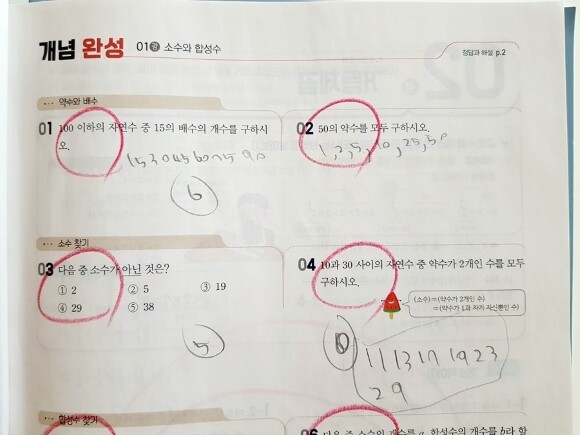 개념 완성 01강 소수와 합성수
정답과 해설 p.2
약수와 배수
01 100 이하의 자연수 중 15의 배수의 개수를 구하시
오.
15 30 45 60 75 90
6
02 50의 약수를 모두 구하시오.
1, 2, 5, 10, 25, 50
소수 찾기
03 다음 중 소수가 아닌 것은?
① 2 ② 5 ③ 19
④ 29 ⑤ 38
5
04 10과 30 사이의 자연수 중 약수가 2개인 수를 모두
구하시오.
(소수)=(약수가 2개인 수)
=(약수가 1과 자기 자신뿐인 수)
11 13 17 19 23
29
합성수 찾기
06 다음 중 소수의 개수를 a, 합성수의 개수를 b라 할